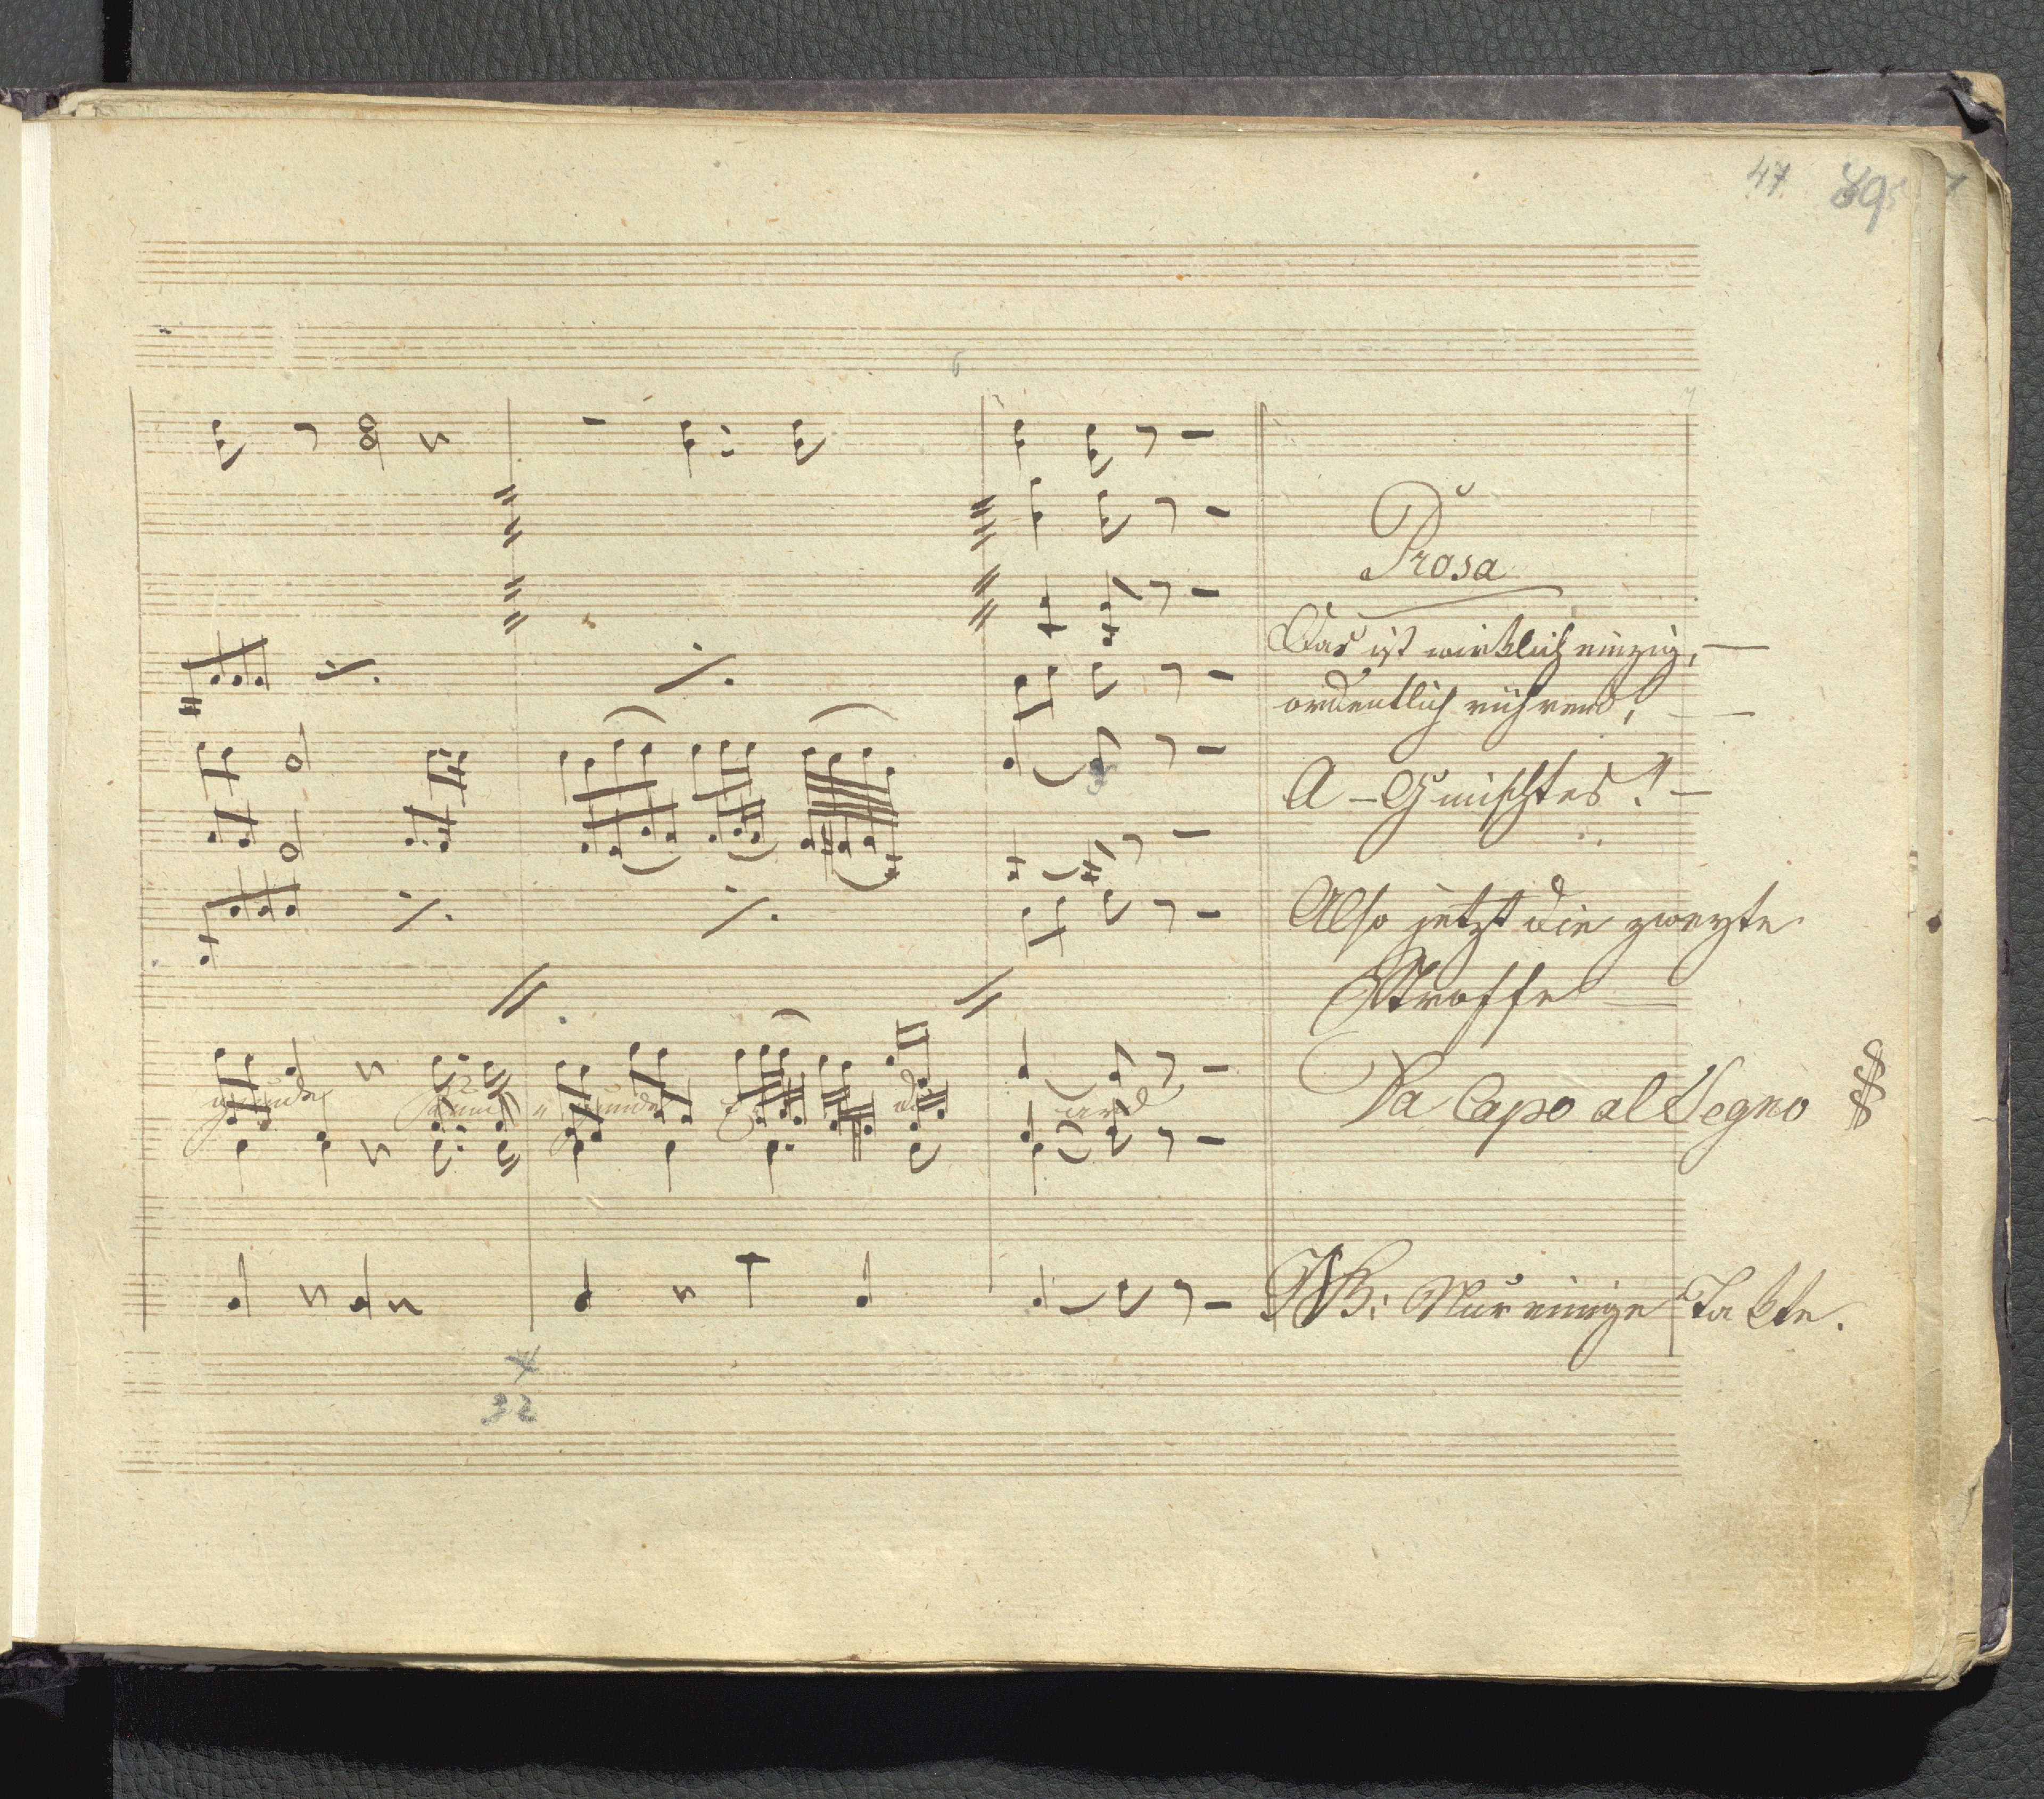 47 89
Prosa
Das ist wirklich einzig, —
ordentlich rührend, —
A – Gmischtes! —
Also jetzt die zweyte
Stroffe —
Da Capo al Segno
NB: Nur einige Takte.
32